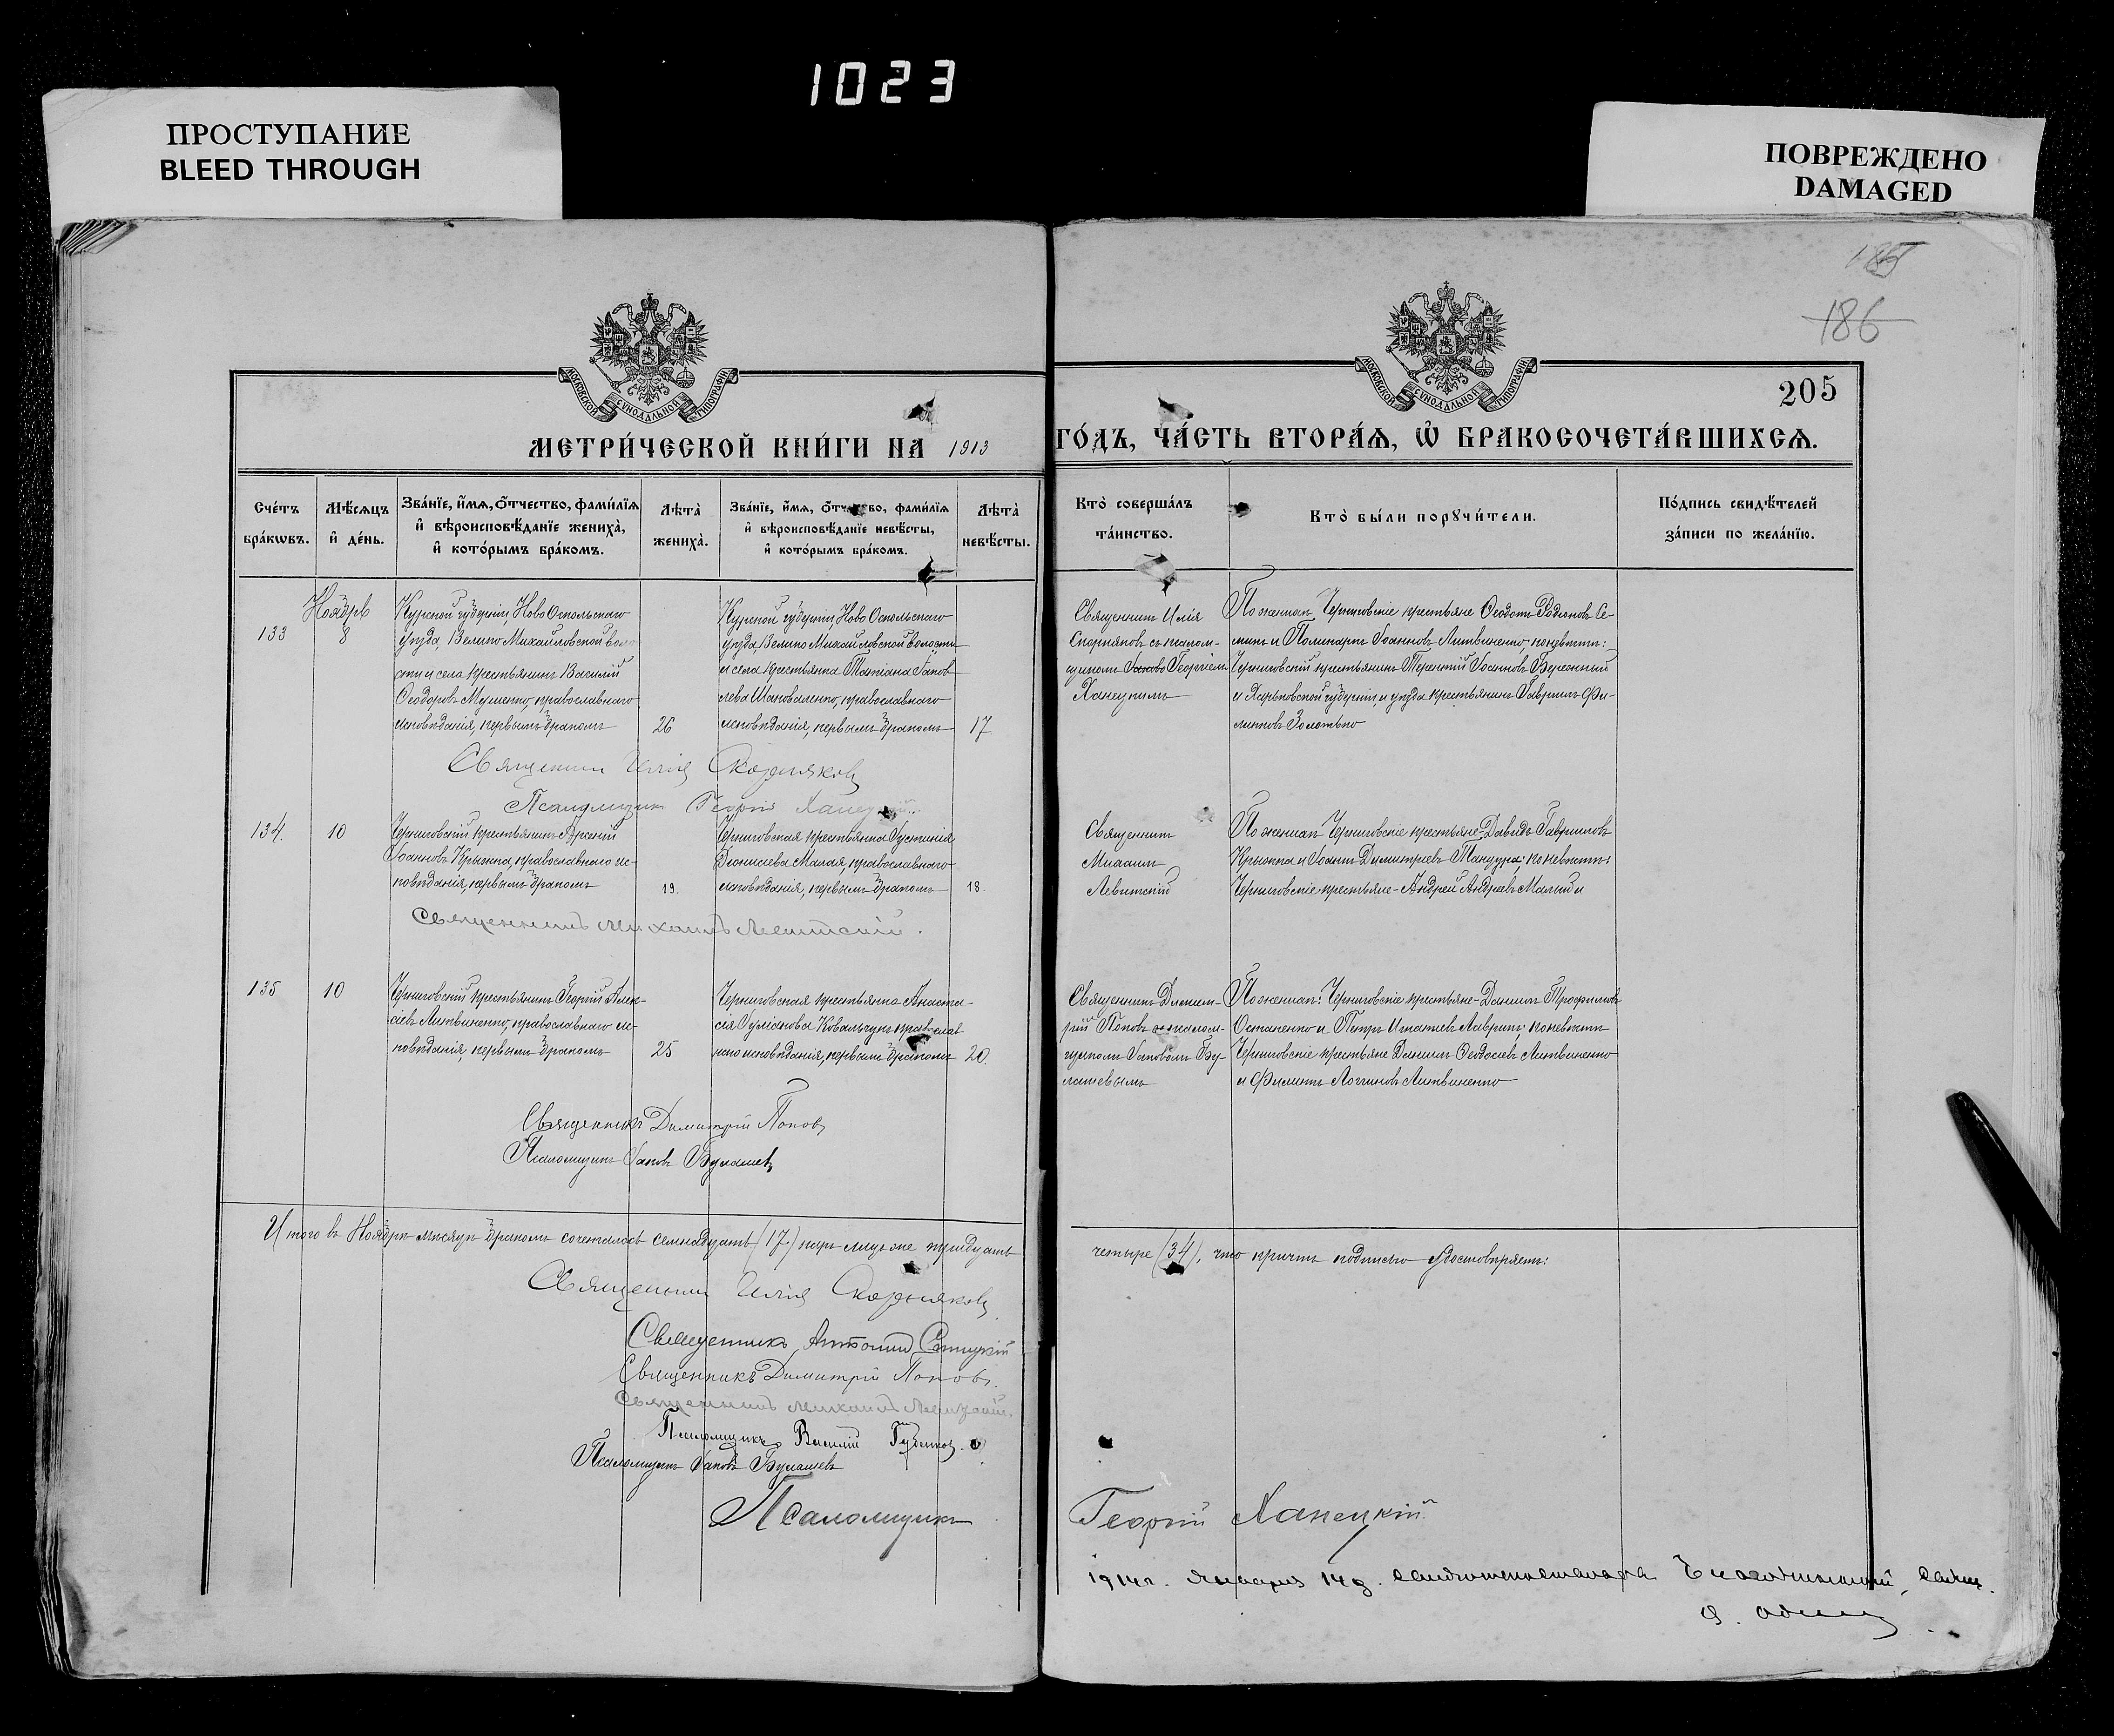 1023
ПРОСТУПАНИЕ
BLEED THROUGH
ПОВРЕЖДЕНО
DAMAGED
186
205
МОСКОВСКОЙ СУНОДАЛЬНОЙ ТИПОГРАФІИ
МОСКОВСКОЙ СУНОДАЛЬНОЙ ТИПОГРАФІИ
МЕТРИ́ЧЕСКОЙ КНИ́ГИ НА 1913
ГО́ДЪ, ЧА́СТЬ ВТОРА́Ѧ, Ѡ҆ БРАКОСОЧЕТА́ВШИХСѦ.
Сче́тъ
бра́кѡвъ.
Мѣ́сѧцъ
и҆ де́нь.
Зва́нїе, и҆́мѧ, ѻ҆́тчество, фами́лїѧ
и҆ вѣроисповѣ́данїе жениха̀,
и҆ кото́рымъ бра́комъ.
Лѣта̀
жениха̀.
Зва́нїе, и҆́мѧ, ѻ҆́тчество, фами́лїѧ
и҆ вѣроисповѣ́данїе невѣ́сты,
и҆ кото́рымъ бра́комъ.
Лѣта̀
невѣ́сты.
Кто̀ соверша́лъ
та́инство.
Кто̀ бы́ли порꙋчи́тели.
По́дпись свидѣ́телей
за́писи по жела́нїю.
133
Ноября
8
Курской губерніи, Ново Оскольскаго
уѣзда, Велико Михайловской воло
сти и села крестьянинъ Василій
Ѳеодоровъ Мушенко, православнаго
исповѣданія, первымъ бракомъ
26
Курской губерніи, Ново Оскольскаго
уѣзда, Велико Михайловской волости
и села крестьянка Татіана Іаков
лева Шаповаленко, православнаго
исповѣданія, первымъ бракомъ
17
Священникъ Илія
Скорняковъ съ псалом-
щикомъ Іаково Георгіем
Ханецкимъ
По женихѣ: Черниговскіе крестьяне Ѳеодотъ Родіоновъ Се-
минъ и Поликарпъ Іоанновъ Литвиненко; по невѣстѣ:
Черниговскій крестьянинъ Терентій Іоанновъ Буланный
и Харьковской губерніи, и уѣзда крестьянинъ Гавріилъ Фи-
липповъ Золотько
Священникъ Илія Скорняковъ
Псаломщикъ Георгій Ханецкій
134.
10
Черниговскій крестьянинъ Арсеній
Іоанновъ Крыжка, православнаго ис-
повѣданія, первымъ бракомъ
19.
Черниговская крестьянка Іустинія
Діонисіева Малая, православнаго
исповѣданія, первымъ бракомъ
18.
Священникъ
Михаилъ
Левитскій
По женихѣ: Черниговскіе крестьяне- Давидъ Гавриловъ
Крыжка и Іоаннъ Димитріевъ Танцура; по невѣстѣ:
Черниговскіе крестьяне- Андрей Андреевъ Малый и
Священникъ Михаилъ Левитскій.
135
10
Черниговскій крестьянинъ Георгій Алек-
сіевъ Литвиненко, православнаго ис-
повѣданія, первымъ бракомъ
25
Черниговская крестьянка Анаста-
сія Іуліанова Ковальчукъ, православ
наго исповѣданія, первымъ бракомъ
20.
Священникъ Димит-
рій Поповъ съ псалом-
щикомъ Іаковомъ Бу-
лашевымъ
По женихѣ: Черниговскіе крестьяне- Даніилъ Трофимовъ
Остапенко и Петръ Игнатіевъ Лавринъ; по невѣстѣ
Черниговскіе крестьяне Даніилъ Ѳеодосіевъ Литвиненко
и Филиппъ Логгиновъ Литвиненко
Священникъ Димитрій Поповъ
Псаломщикъ Іаковъ Булашевъ
Итого въ Ноябрѣ мѣсяцѣ бракомъ сочеталось семнадцать (17) паръ лицъ же тридцать
четыре (34), что причтъ подписью удостовѣряетъ:
Священникъ Илія Скорняковъ
Священникъ Антоній
Священникъ Димитрій Поповъ.
Священникъ Михаилъ Левитскій.
Псаломщикъ Василій
Псаломщикъ Іаковъ Булашевъ
Псаломщикъ
Георгій Ханецкій
1914 г. Января 14 д. Благочинный, Свящ.